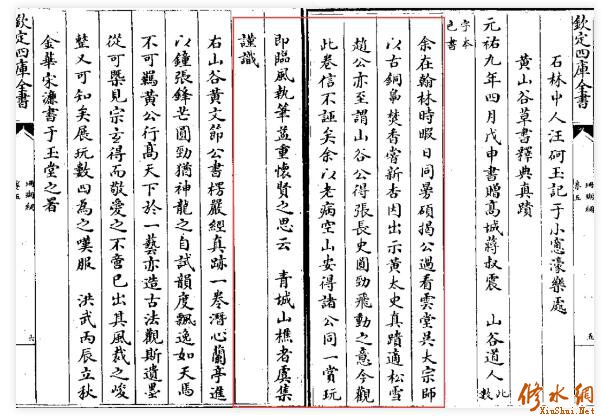 欽定四庫全書
珊瑚網
卷五
五
石林中人汪砢玉記于小窻濠樂處
黃山谷草書釋典真蹟
元祐九年四月戊申書贈高城蔣叔震 山谷道人 此教
字本色書
余在翰林時暇日同曷碩揭公過看雲堂吳大宗師
以古銅鼎焚香旁新杏因出示黃太史真蹟適松雪
趙公亦至謂山谷公得張長史圓勁飛動之意今觀
此卷信不誣矣余以老病空山安得諸公同一賞玩
即臨風執筆益重懷賢之思云 青城山樵者虞集
謹識
右山谷黃文節公書楞嚴經真跡一卷潛心蘭亭進
以鍾張鋒芒圓勁猶神龍之自試韻度飄逸如天馬
不可羈黃公行高天下於一藝亦造古法觀斯遺墨
從可槩見宗玄得而敬愛之不啻已出其風裁之峻
整又可知矣展玩數四為之嘆服 洪武丙辰立秋
金華宋濂書于玉堂之署
欽定四庫全書
珊瑚網
卷五
六
修水網
XinShui.Net